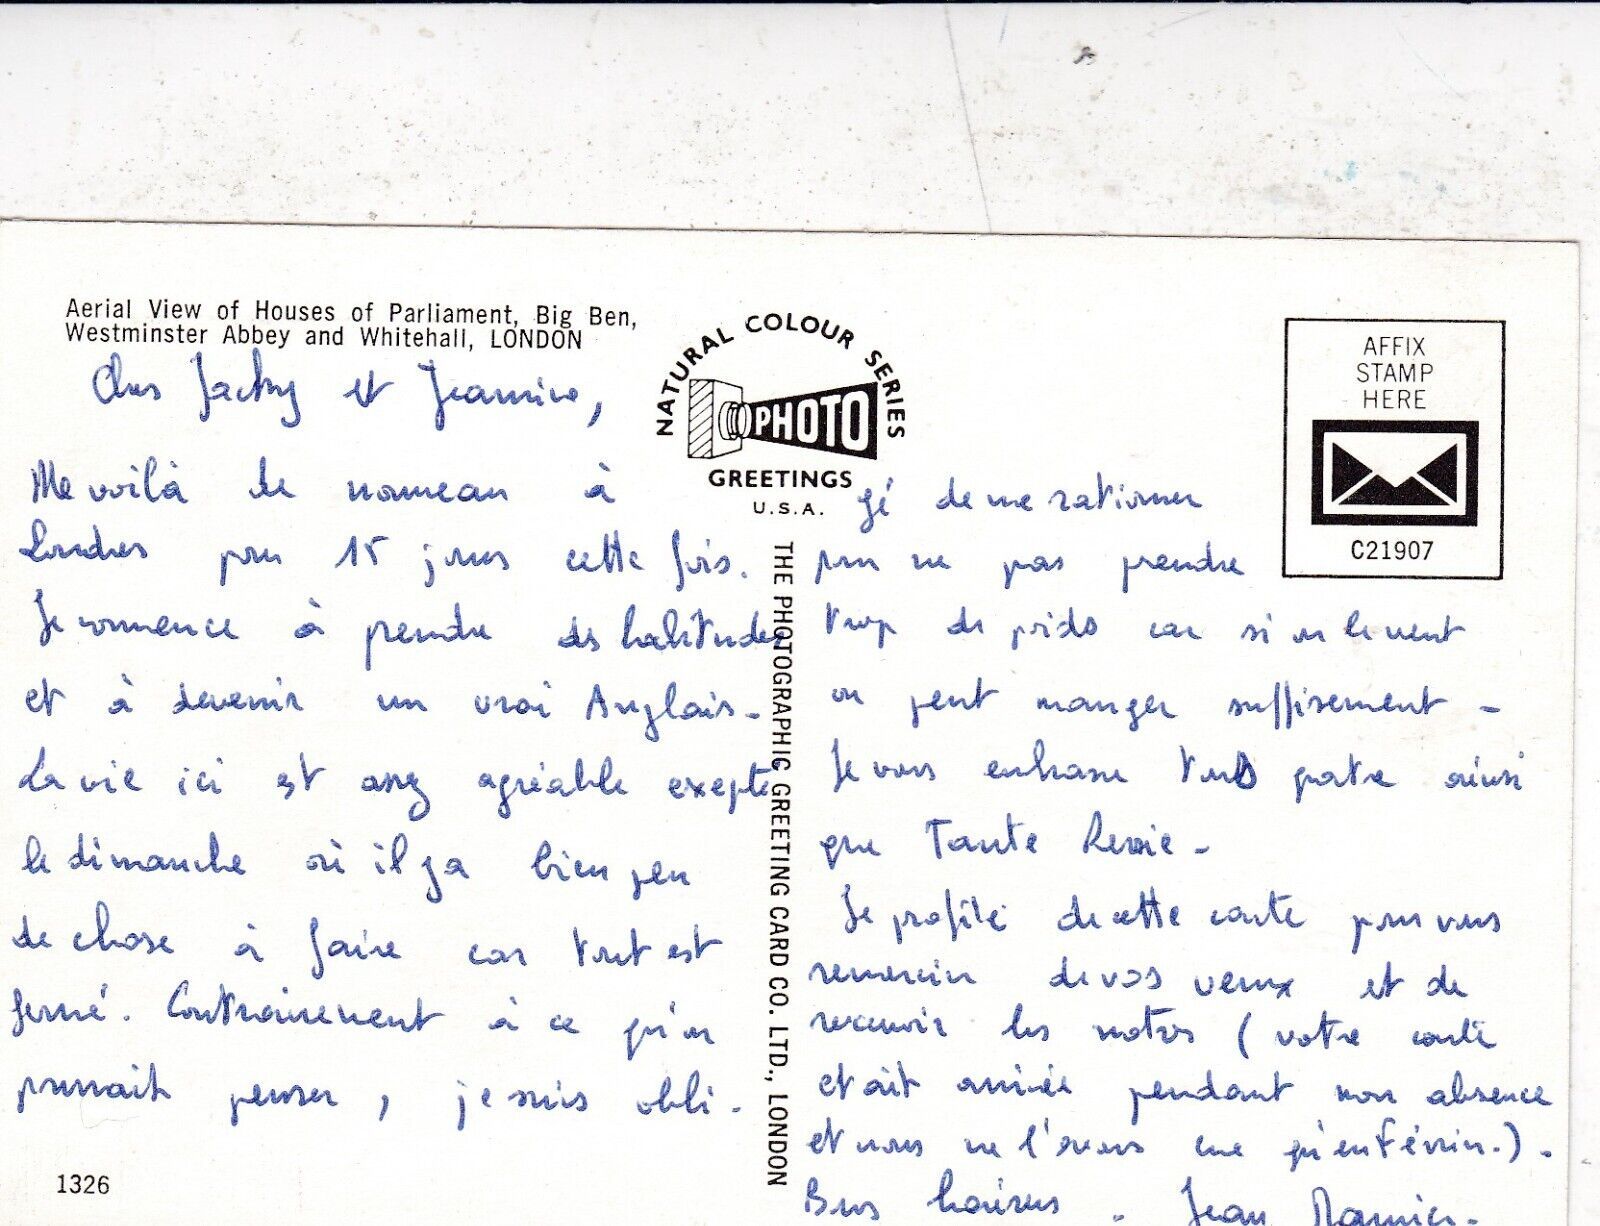 Aerial View of Houses of Parliament, Big Ben,
Westminster Abbey and Whitehall, LONDON
NATURAL COLOUR SERIES
PHOTO
GREETINGS
U.S.A.
AFFIX
STAMP
HERE
C21907
THE PHOTOGRAPHIC GREETING CARD CO. LTD., LONDON
Chers Jacky et Jeannine,
Me voilà de nouveau à
Londres pour 15 jours cette fois.
Je commence à prendre des habitudes
et à devenir un vrai Anglais.
La vie ici est assez agréable exepté
le dimanche où il y a bien peu
de chose à faire car tout est
fermé. Contrairement à ce qu'on
pourrait penser, je suis obli-
gé de me rationner
pour ne pas prendre
trop de poids car si on le veut
on peut manger suffisement -
Je vous embrasse tous quatre ainsi
que Tante -
Je profite de cette carte pour vous
remercier de vos veux et de
recevoir les notres (votre carte
etait arrivée pendant mon absence
et nous ne l'avons eue qu'en Février.) -
Bons baisers - Jean
1326